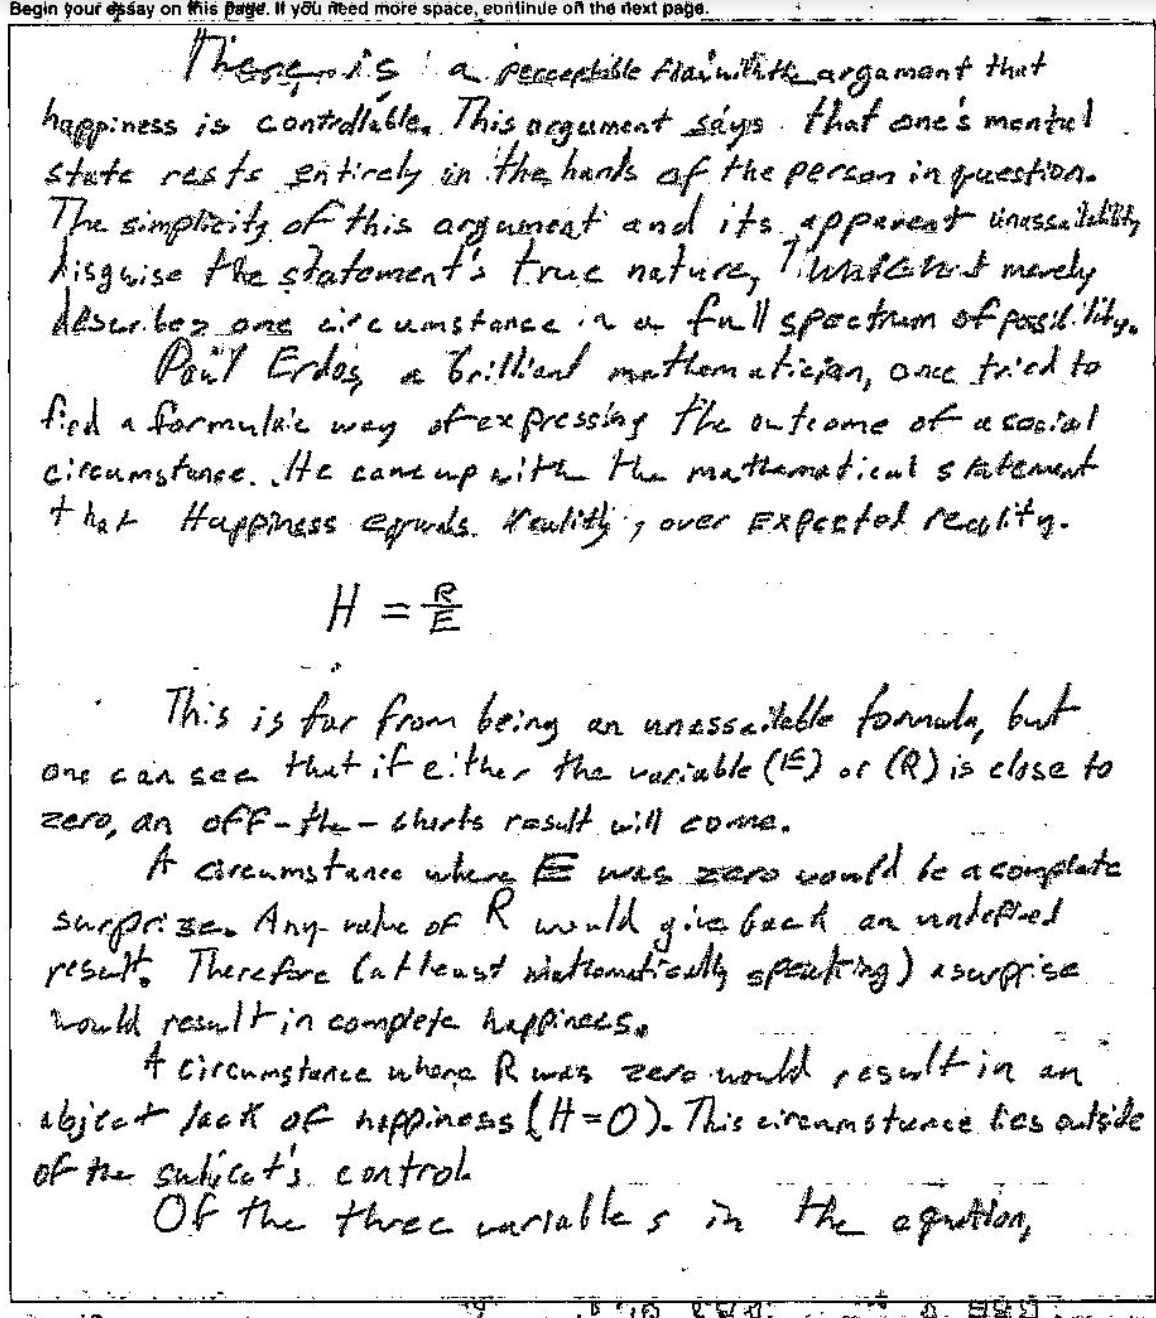 Begin your essay on this page. If you need more space, continue on the next page.
There is a perceptable flaw with the argument that
happiness is controllable. This argument says that one's mental
state rests entirely in the hands of the person in question.
The simplicity of this argument and its apparent unassailability
disguise the statement's true nature, merely
describes one circumstance in a full spectrum of possibility.
Paul Erdos, a brilliant mathematician, once tried to
find a formulaic way of expressing the outcome of a social
circumstance. He came up with the mathematical statement
that Happiness equals reality, over Expected reality.
H = R/E
This is far from being an unassailable formula, but
one can see that if either the variable (E) or (R) is close to
zero, an off-the-charts result will come.
A circumstance where E was zero would be a complete
surprize. Any value of R would give back an undefined
result. Therefore (at least mathematically speaking) a surprise
would result in complete happiness.
A circumstance where R was zero would result in an
abject lack of happiness (H=0). This circumstance lies outside
of the subject's control.
Of the three variables in the equation,